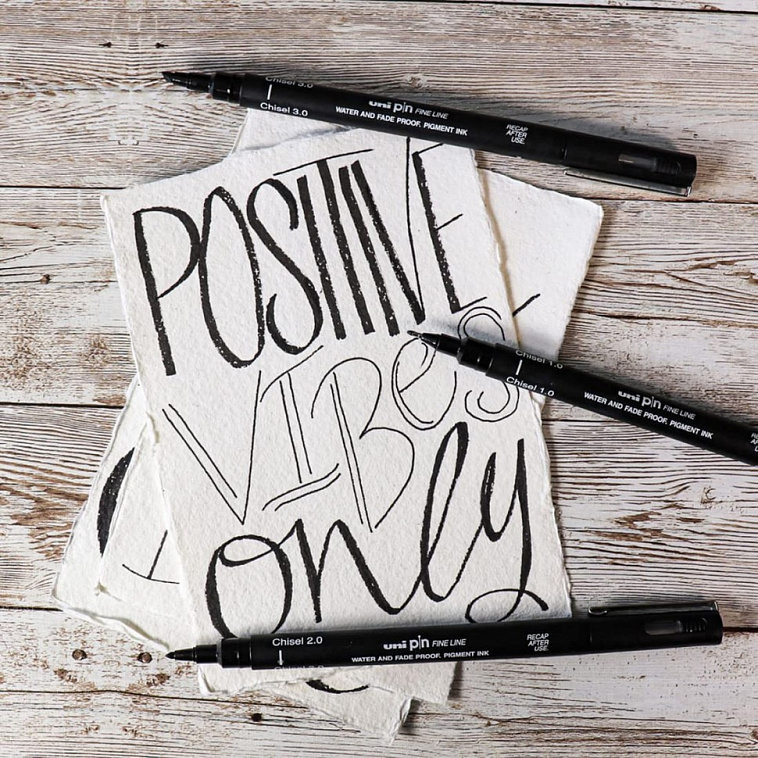 Chisel 3.0
Chisel 3.0
uni pin FINE LINE
WATER AND FADE PROOF. PIGMENT INK
RECAP
AFTER
USE.
POSITIVE
VIBES
only
Chisel 1.0
Chisel 1.0
uni pin FINE LINE
WATER AND FADE PROOF. PIGMENT INK
Chisel 2.0
uni pin FINE LINE
WATER AND FADE PROOF. PIGMENT INK
RECAP
AFTER
USE.